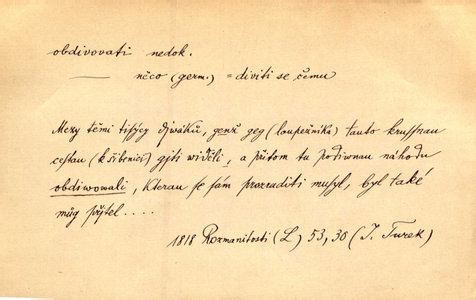 obdivovati nedok.
—— něco (germ.) = diviti se čemu
Mezy těmi tisýcy djwáků, genž geg (loupežníka) tauto krussnau
cestau (k šibenici) gjti widěli, a přitom tu podiwnau náhodu
obdiwowali, kterau se sám prozraditi musyl, byl také
můg přjtel ....
1818 Rozmanitosti (L) 53, 30 (J. Turek)